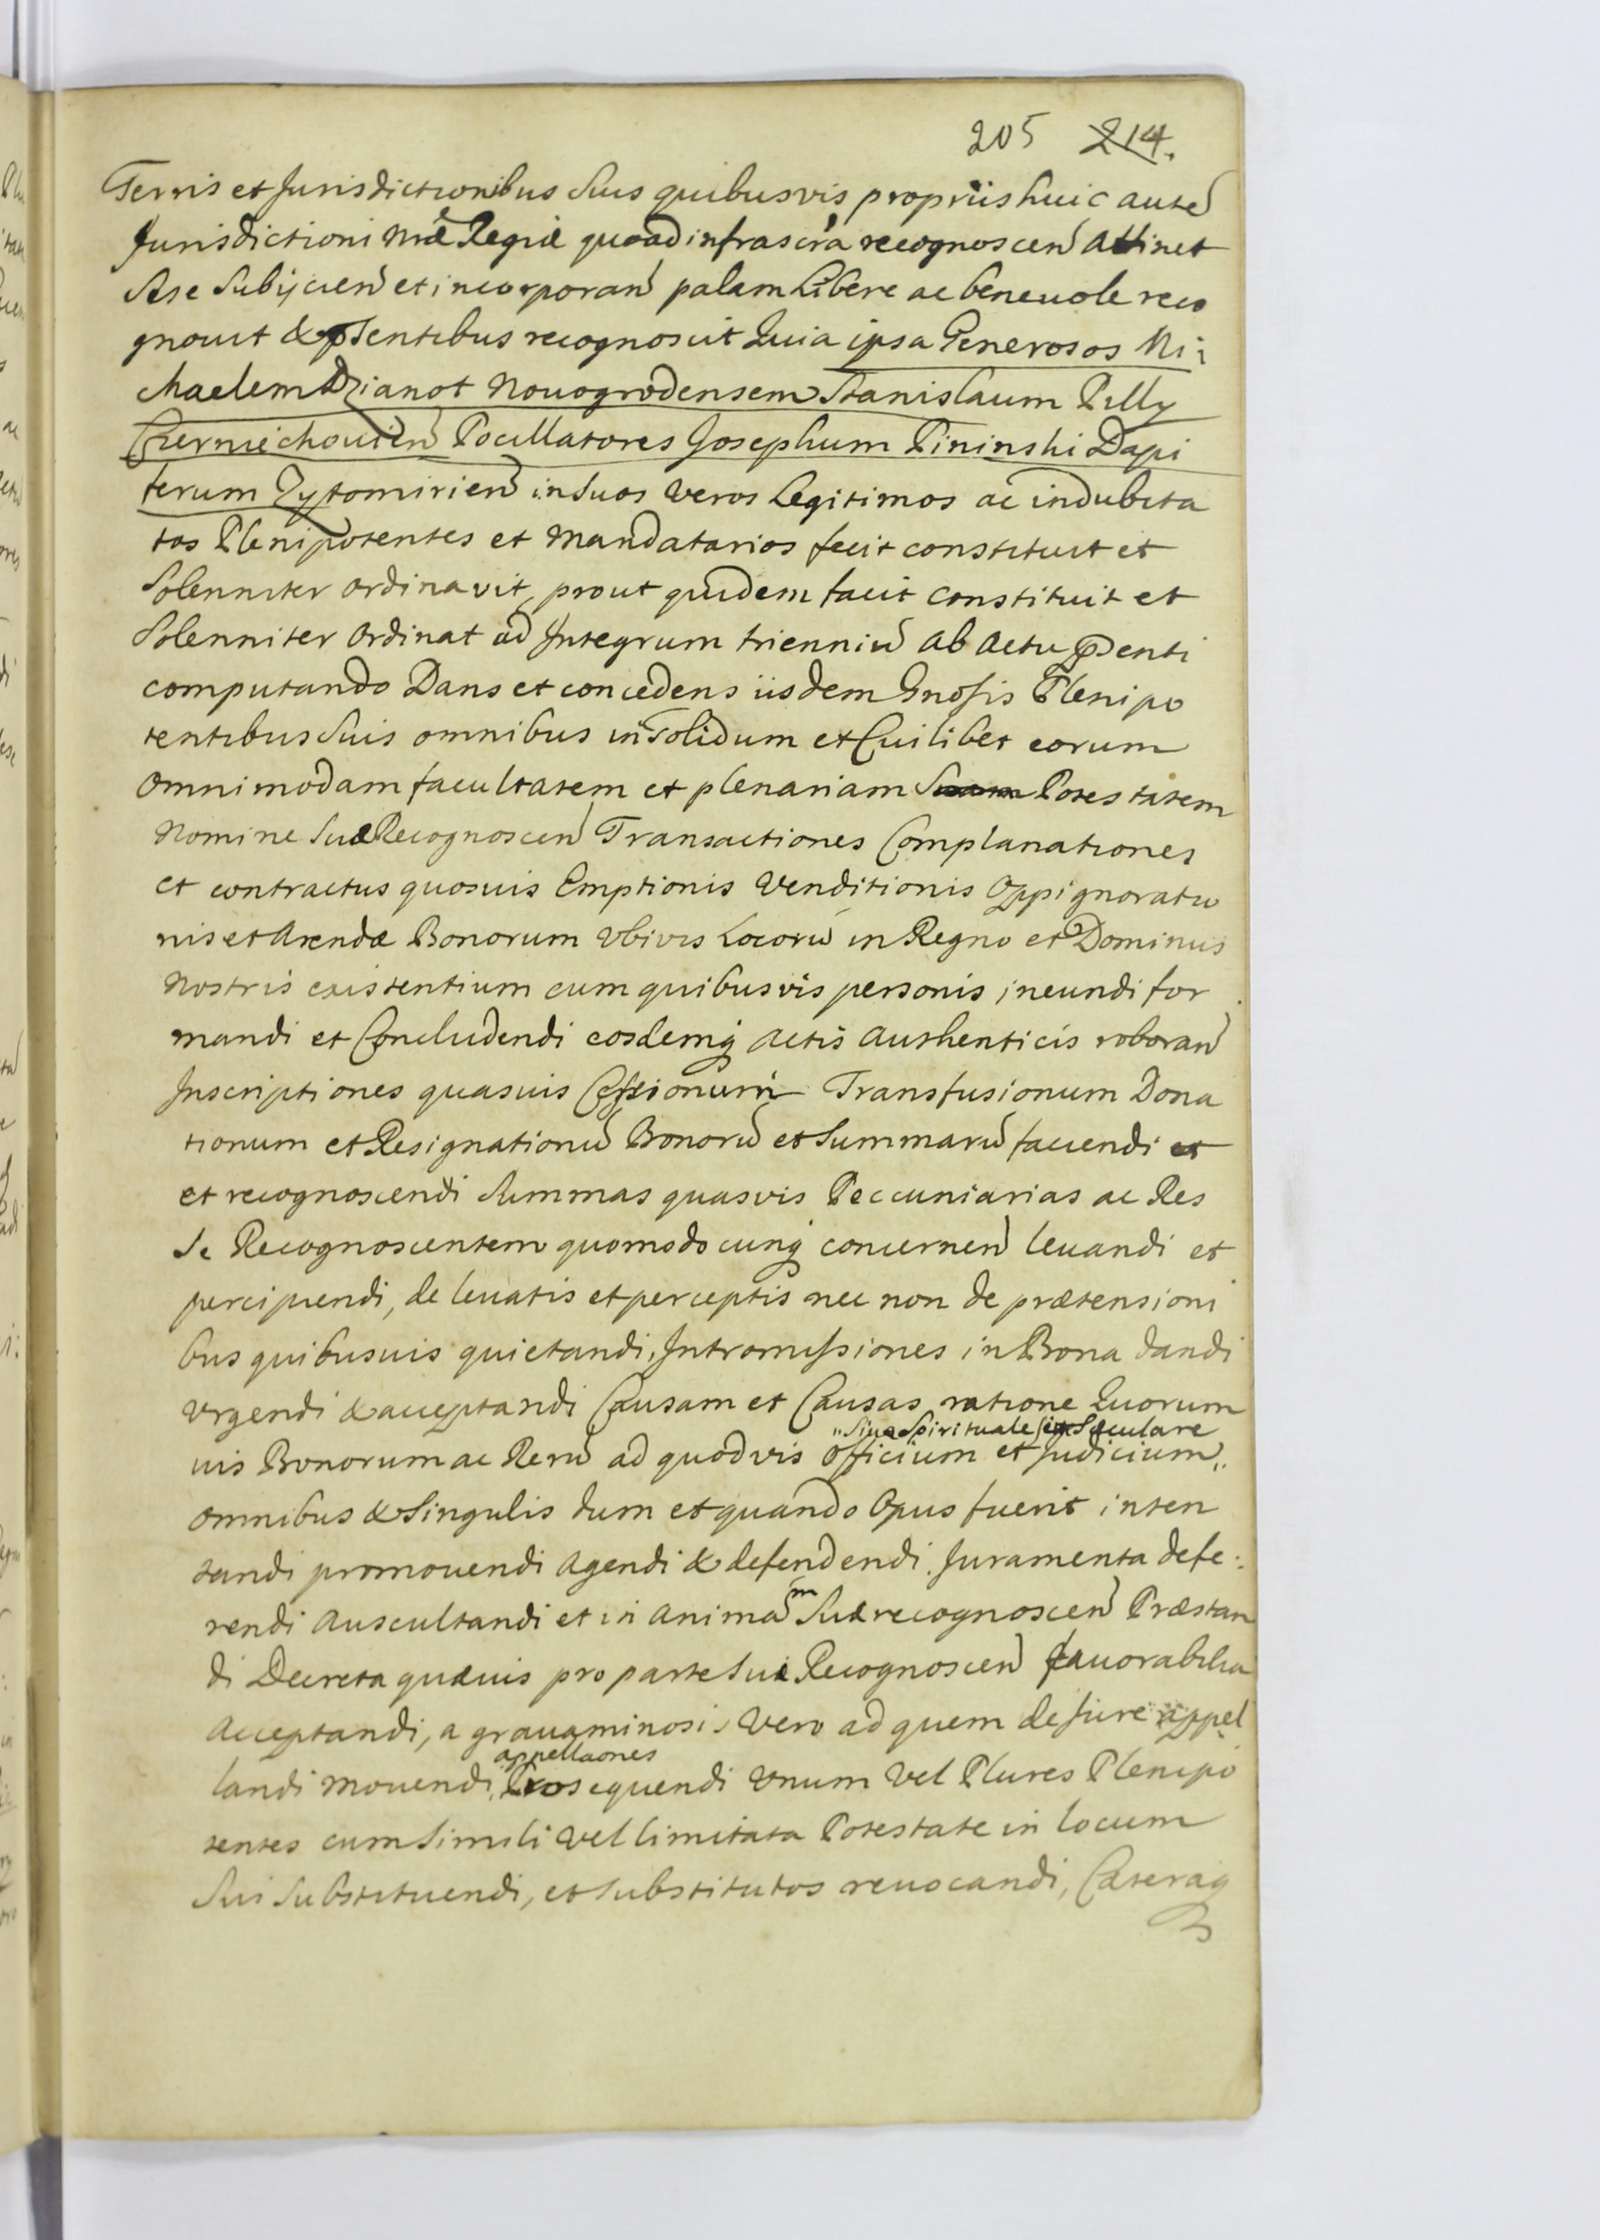 205 214.
Terris et Jurisdictionibus Suis quibusvis proprijs huic autē
Jurisdictioni Nrae Regiae quoad infrascra recognoscen attinet
se se Subijcien et incorporan palam Libere ac beneuole reco
gnouit & pnsentibus recognoscit Quia ipsa Generosos Mi:
chaelem Dzianot Nouogrodensem Stanislaum Pilly
Czerniechouien Pocillatores Josephum Pininski Dapi
ferum Zytomirien in Suos Veros Legitimos ac indubita
tos Plenipotentes et Mandatarios fecit constituit et
Solenniter ordinavit, prout quidem facit constituit et
Solenniter Ordinat ad Integrum trienniū ab Actu pnsenti
computando Dans et concedens iisdem Gnosis Plenipo
tentibus Suis omnibus in Solidum et Cuilibet eorum
omnimodam facultatem et plenariam Suam Potestatem
Nomine Suae Recognoscen Transactiones Complanationes
et contractus quosuis Emptionis Venditionis Oppignoratio
nis et Arendae Bonorum Vbivis Locorū in Regno et Dominiis
Nostris existentium cum quibusvis personis ineundi for
mandi et Concludendi eosdemq Actis Authenticis roboran
Inscriptiones quasuis Cessionum Transfusionum Dona
tionum et Resignationū Bonorū et Summarū faciendi et
et recognoscendi Summas quasvis Peccuniarias ac Res
Se Recognoscentem quomodocunq concernen leuandi et
percipiendi, de leuatis et perceptis nec non de praetensioni
bus quibusuis quietandi, Intromissiones in Bona dandi
Vrgendi & acceptandi Causam et Causas ratione Quorum
"Siue Spirituale siue Saeculare
uis Bonorum ac Rerū ad quodvis officium et Judicium"
omnibus & Singulis dum et quando Opus fuerit inten
tandi promouendi Agendi & defendendi. Juramenta defe:
rendi Auscultandi et in animam Suae recognoscen Praestan
di Decreta quaeuis pro parte Suae Recognoscen fauorabilia
Acceptandi, a grauaminosis Vero ad quem de Jure appel
appellaones
landi mouendi, Prosequendi Vnum Vel Plures Plenipo
tentes cum Simili Vel limitata Potestate in locum
Sui Substituendi, et substitutos reuocandi, Caeteraq